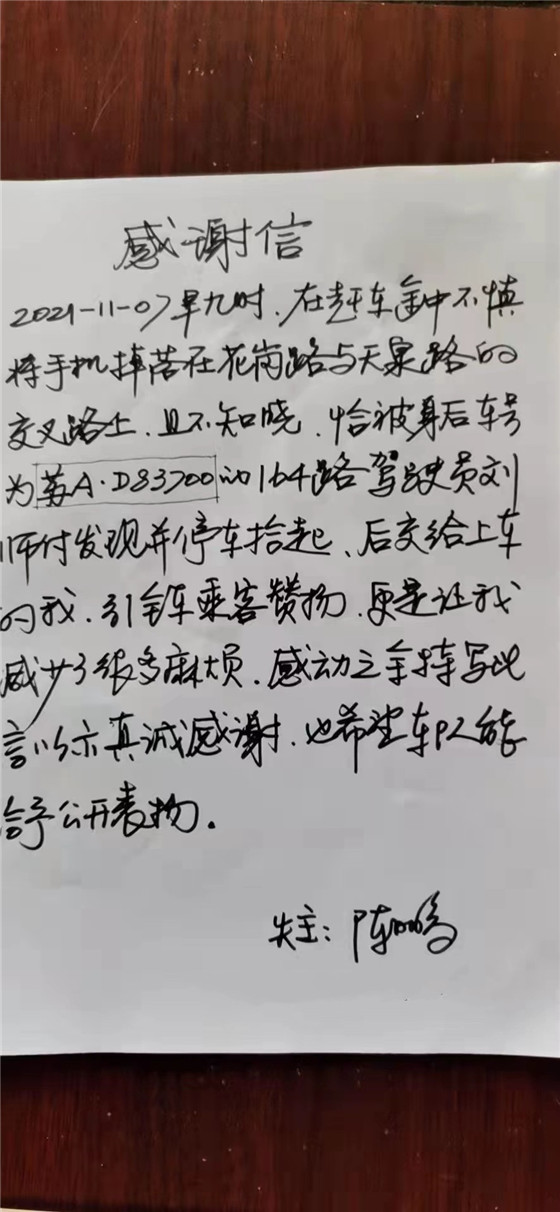 感谢信
2021-11-07早九时.在赶车途中不慎
将手机掉落在花岗路与天泉路的
交叉路上.且不知晓.恰被身后车号
为苏A·D83700的164路驾驶员刘
师付发现并停车拾起、后交给上车
的我.引全车乘客赞扬.更是让我
减少了很多麻烦.感动之余特写此
言以示真诚感谢.也希望车队能
给予公开表扬.
失主:陈鸣